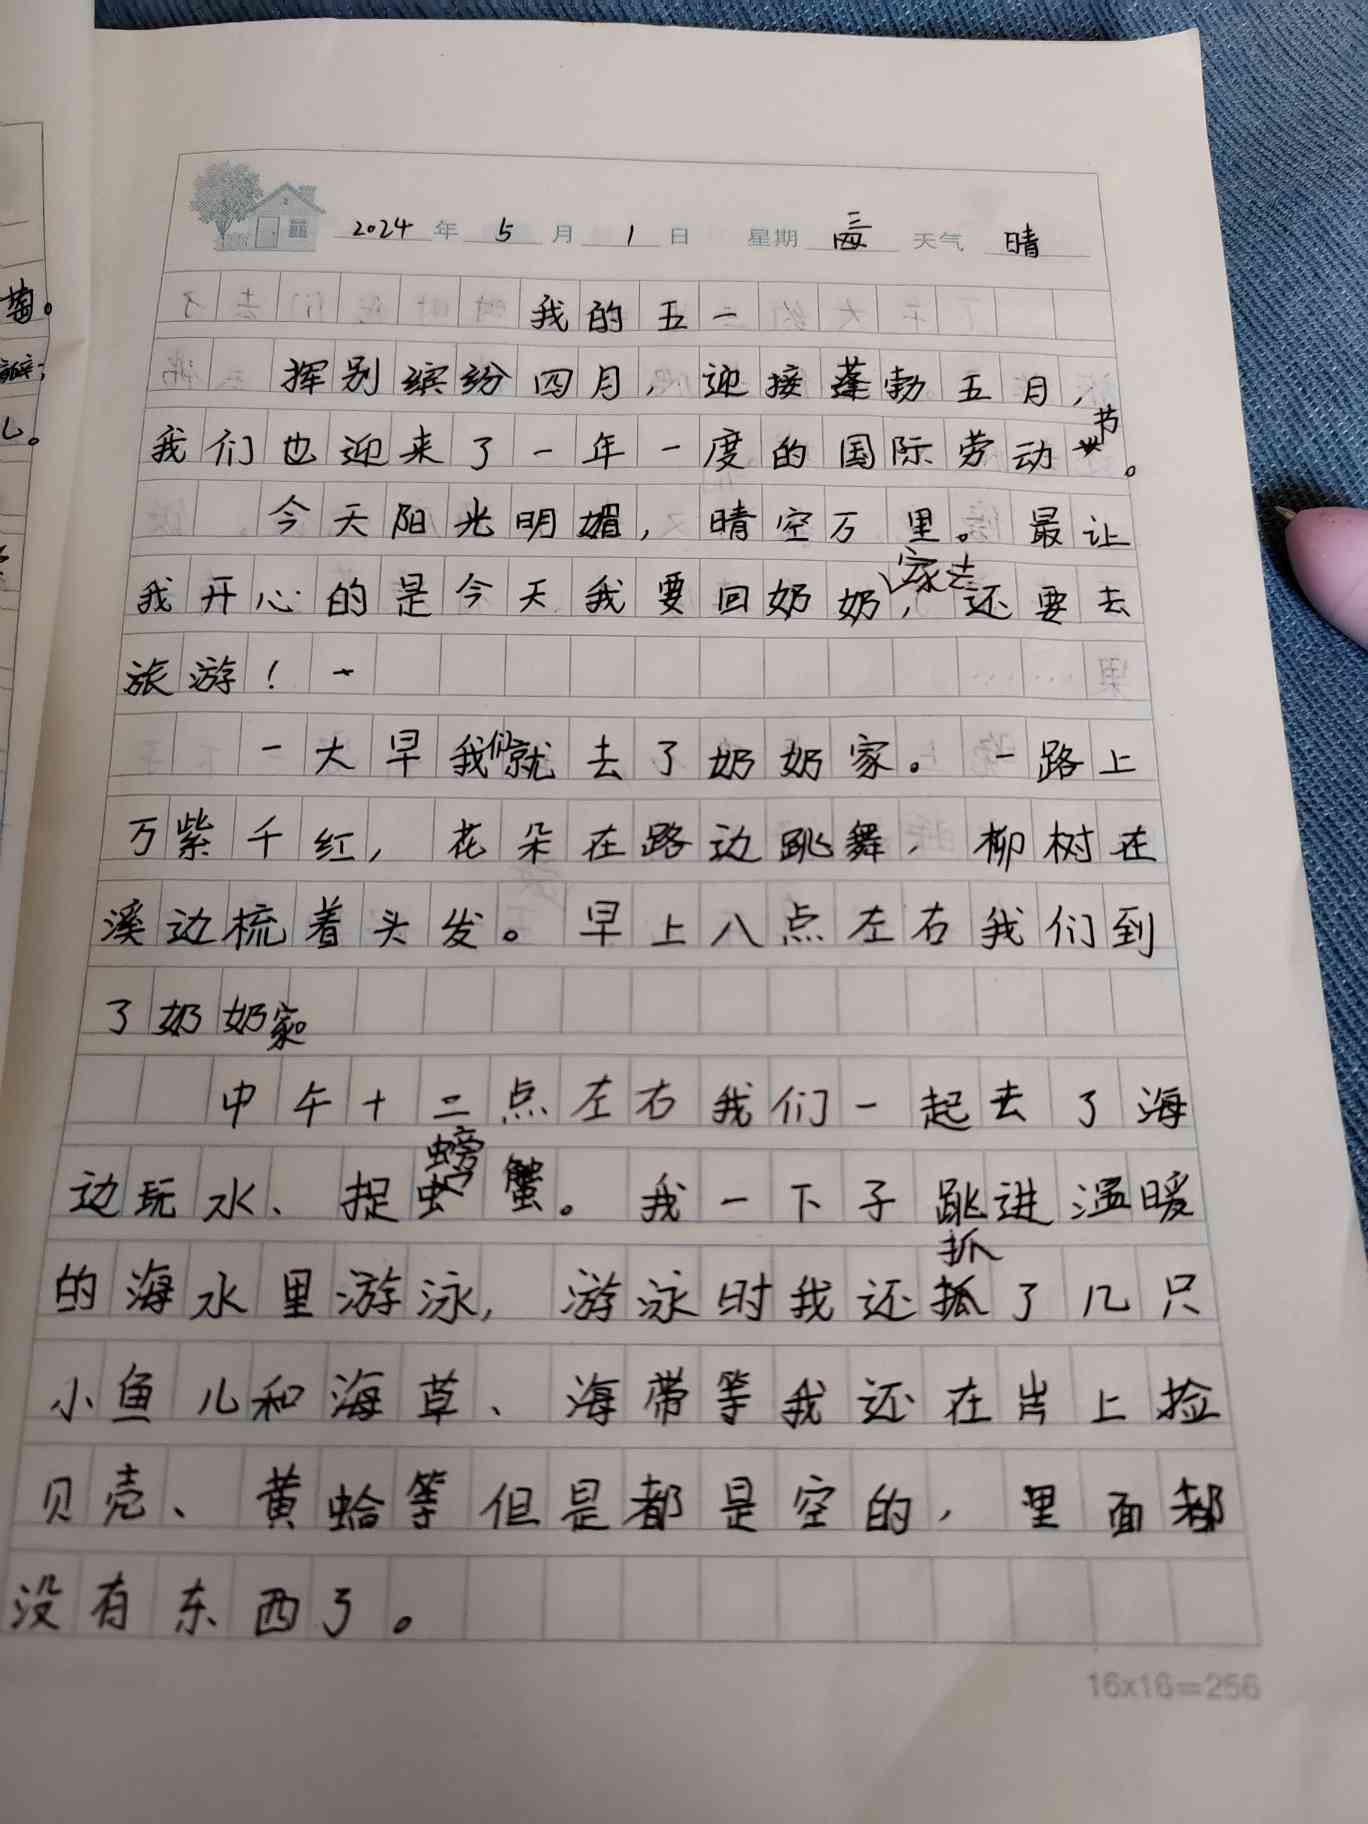 2024 年 5 月 1 日 星期 三 天气 晴
我的五一
挥别缤纷四月，迎接蓬勃五月，
我们也迎来了一年一度的国际劳动节。
今天阳光明媚，晴空万里。最让
我开心的是今天我要回奶奶家去，还要去
旅游！
一大早我们就去了奶奶家。一路上
万紫千红，花朵在路边跳舞，柳树在
溪边梳着头发。早上八点左右我们到
了奶奶家。
中午十二点左右我们一起去了海
边玩水、捉螃蟹。我一下子跳进温暖
的海水里游泳，游泳时我还抓了几只
小鱼儿和海草、海带等我还在岸上捡
贝壳、黄蛤等但是都是空的，里面都
没有东西了。
16x16=256